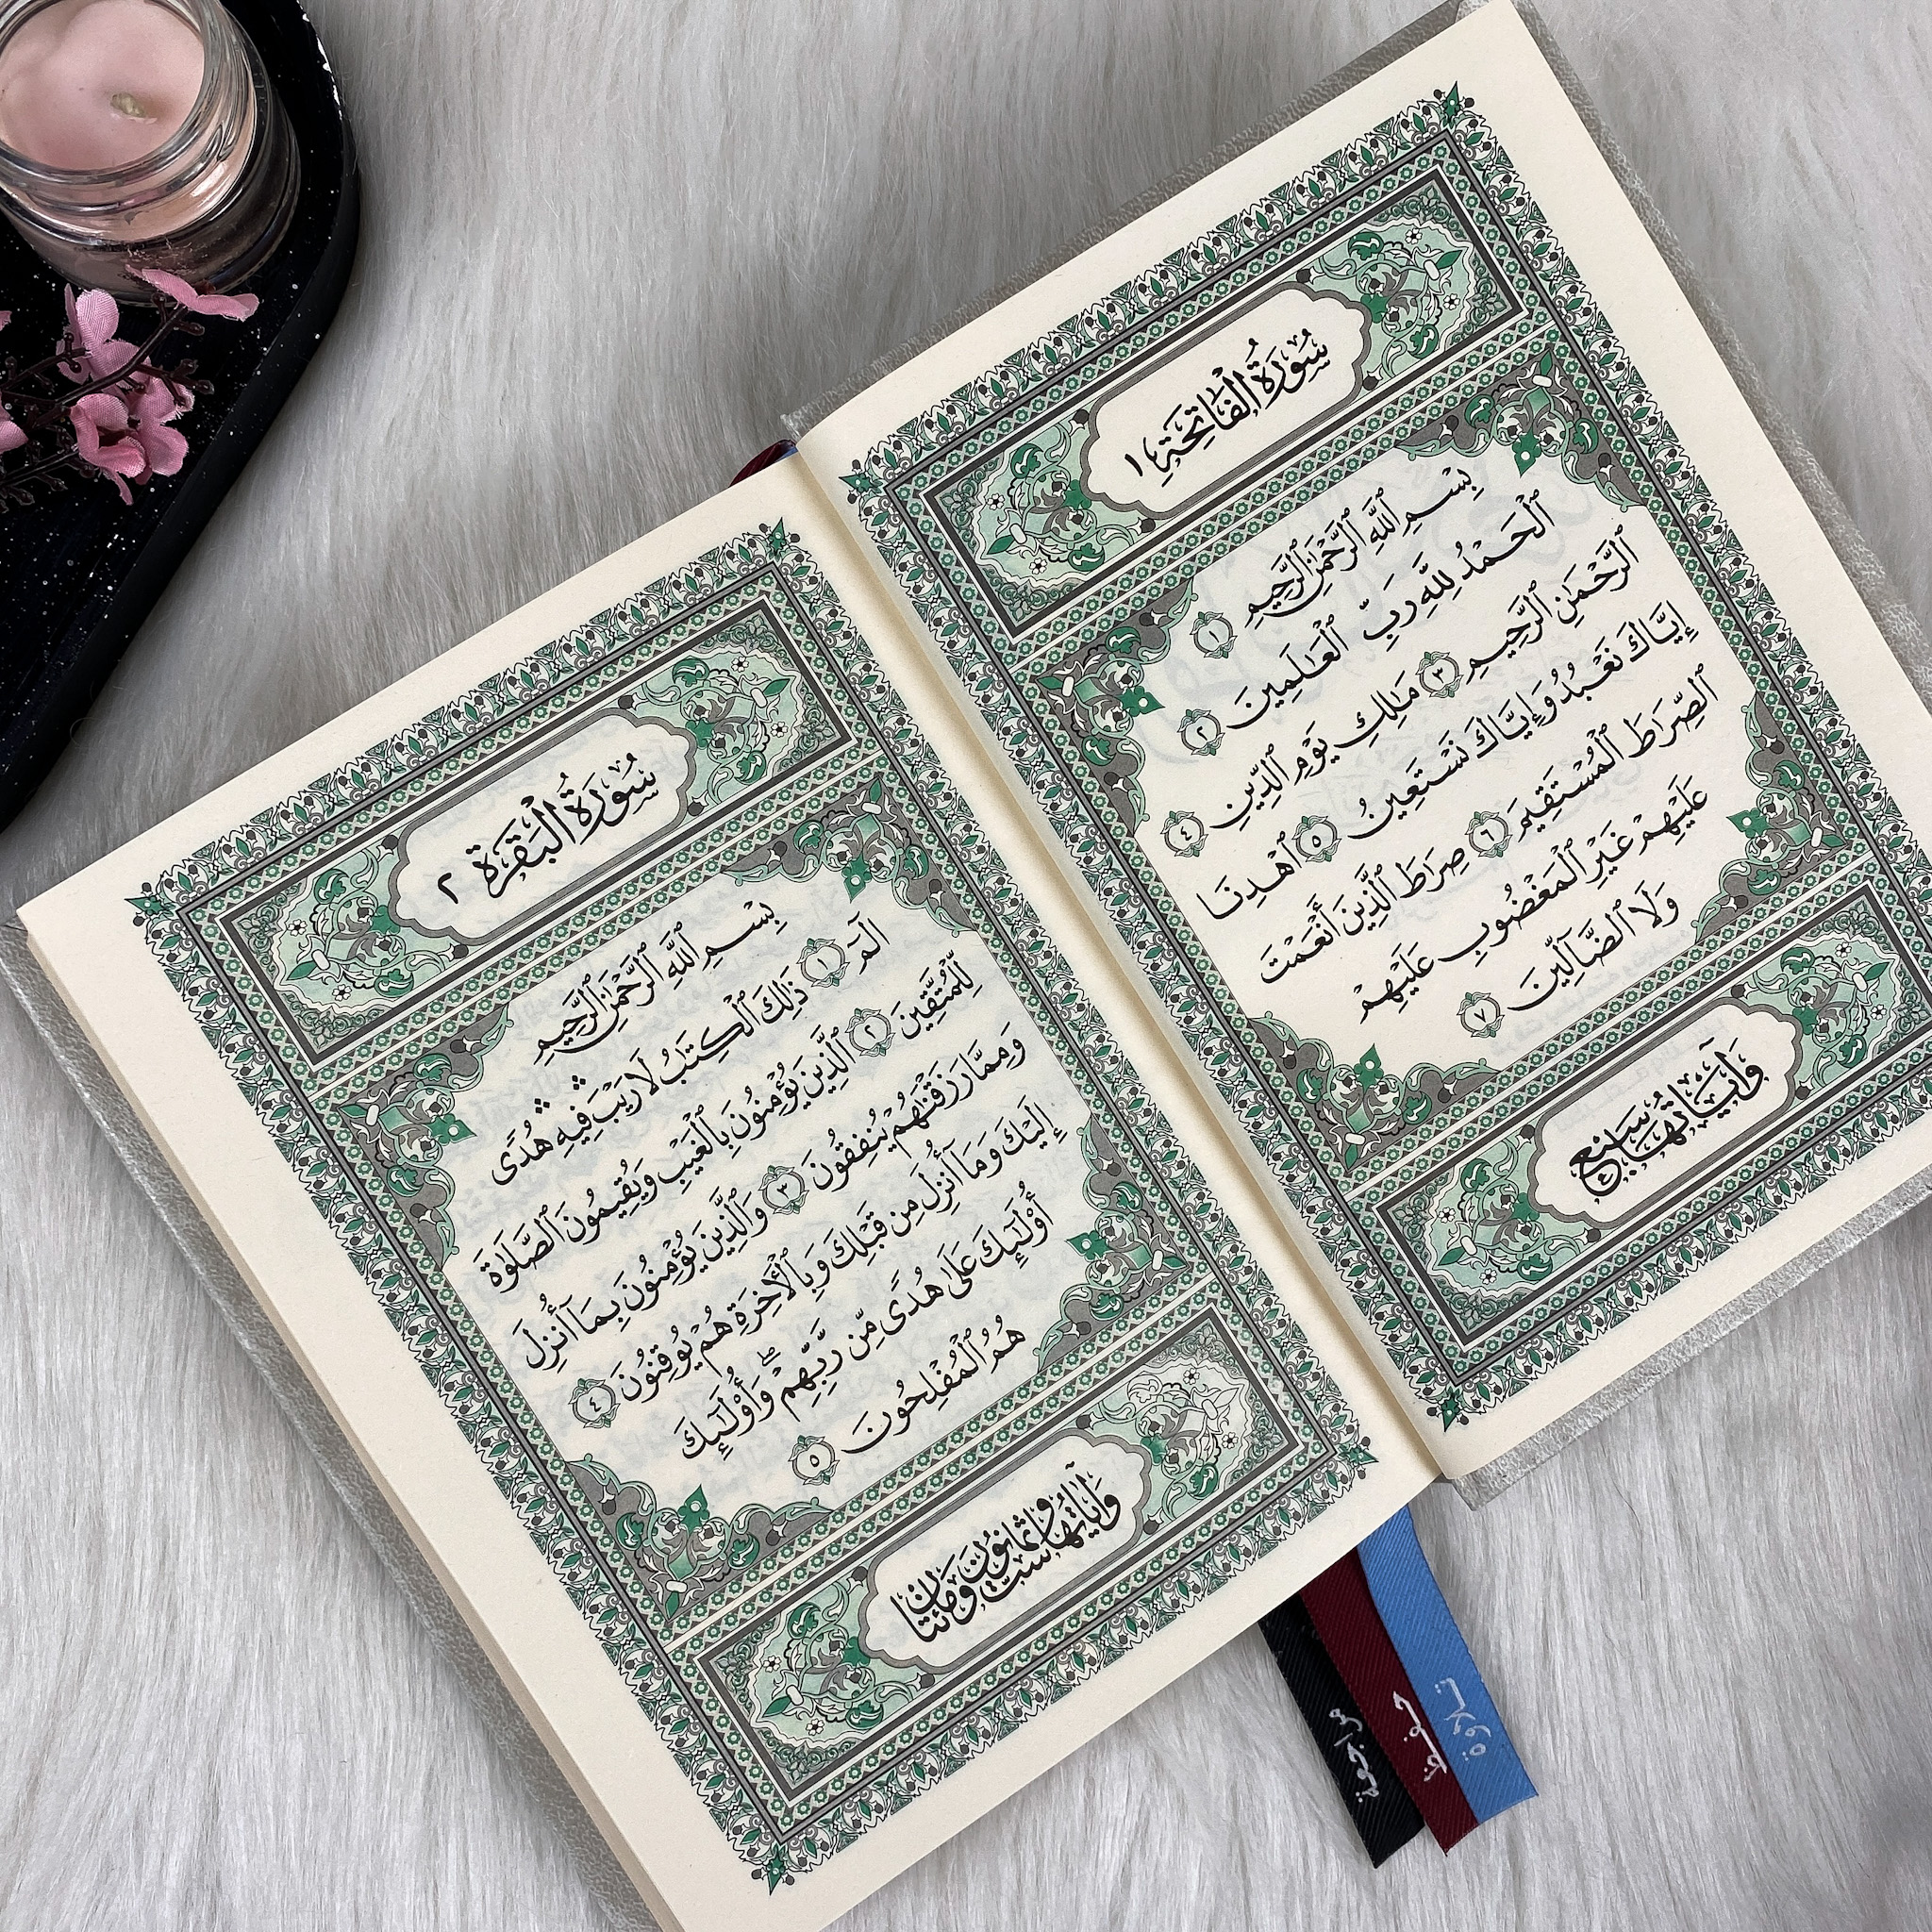 سُورَةُ الْفَاتِحَةِ ١
بِسْمِ ٱللَّهِ ٱلرَّحْمَٰنِ ٱلرَّحِيمِ ١
ٱلْحَمْدُ لِلَّهِ رَبِّ ٱلْعَٰلَمِينَ ٢
ٱلرَّحْمَٰنِ ٱلرَّحِيمِ ٣ مَٰلِكِ يَوْمِ ٱلدِّينِ ٤
إِيَّاكَ نَعْبُدُ وَإِيَّاكَ نَسْتَعِينُ ٥ ٱهْدِنَا
ٱلصِّرَٰطَ ٱلْمُسْتَقِيمَ ٦ صِرَٰطَ ٱلَّذِينَ أَنْعَمْتَ
عَلَيْهِمْ غَيْرِ ٱلْمَغْضُوبِ عَلَيْهِمْ
وَلَا ٱلضَّآلِّينَ ٧
وَآيَاتُهَا سَبْعٌ
سُورَةُ الْبَقَرَةِ ٢
بِسْمِ ٱللَّهِ ٱلرَّحْمَٰنِ ٱلرَّحِيمِ
الٓمٓ ١ ذَٰلِكَ ٱلْكِتَٰبُ لَا رَيْبَ ۛ فِيهِ ۛ هُدًى
لِّلْمُتَّقِينَ ٢ ٱلَّذِينَ يُؤْمِنُونَ بِٱلْغَيْبِ وَيُقِيمُونَ ٱلصَّلَوٰةَ
وَمِمَّا رَزَقْنَٰهُمْ يُنفِقُونَ ٣ وَٱلَّذِينَ يُؤْمِنُونَ بِمَآ أُنزِلَ
إِلَيْكَ وَمَآ أُنزِلَ مِن قَبْلِكَ وَبِٱلْءَاخِرَةِ هُمْ يُوقِنُونَ ٤
أُو۟لَٰٓئِكَ عَلَىٰ هُدًى مِّن رَّبِّهِمْ ۖ وَأُو۟لَٰٓئِكَ
هُمُ ٱلْمُفْلِحُونَ ٥
وَآيَاتُهَا سِتٌّ وَثَمَانُونَ وَمِائَتَانِ
مراجعة
حفظ
تلاوة